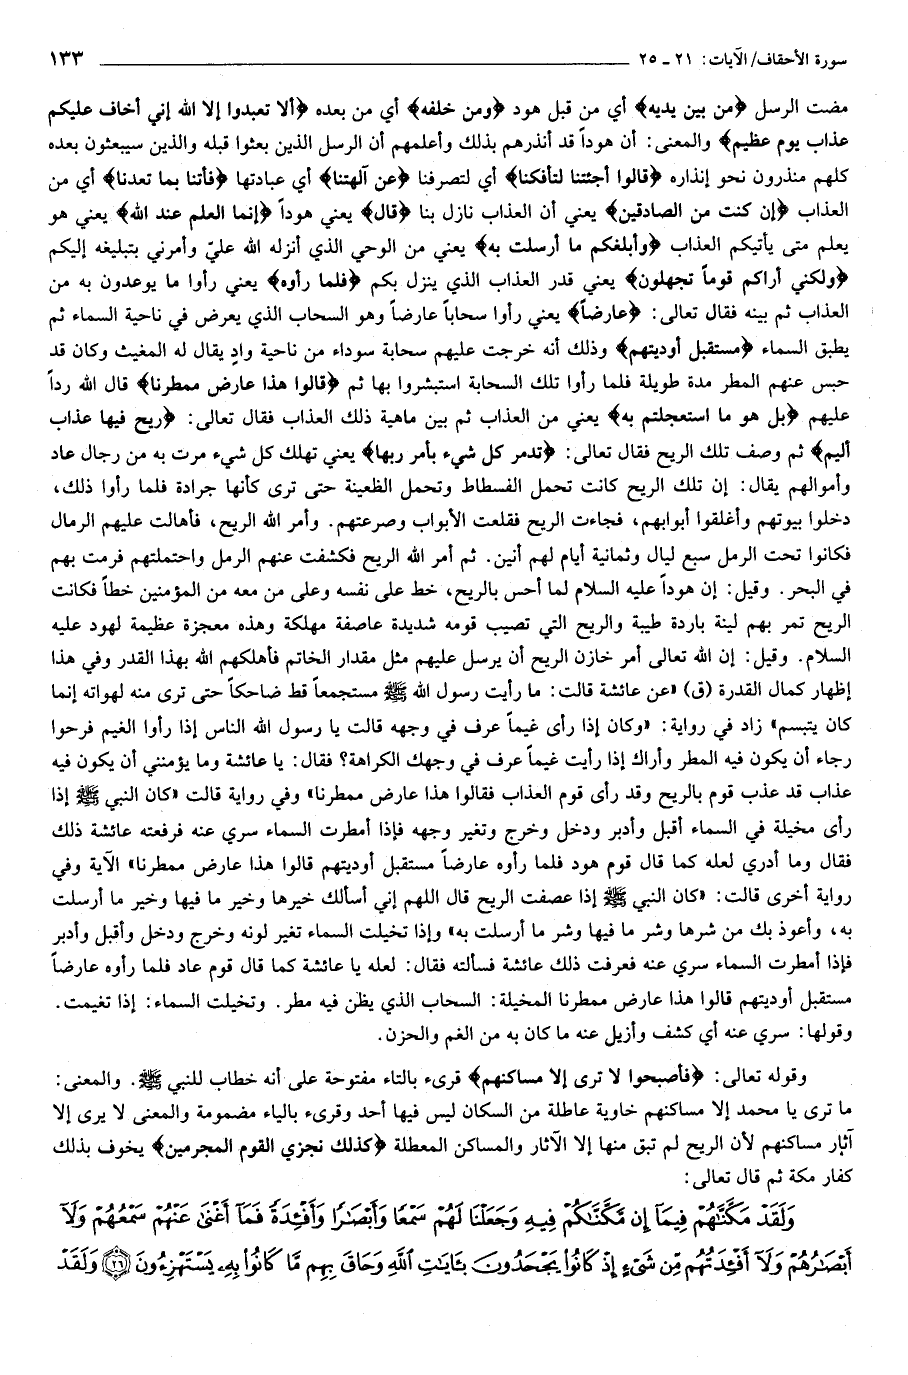 سورة الأحقاف/ الآيات: ٢١ - ٢٥ ١٣٣
مضت الرسل ﴿من بين يديه﴾ أي من قبل هود ﴿ومن خلفه﴾ أي من بعده ﴿ألا تعبدوا إلا الله إني أخاف عليكم
عذاب يوم عظيم﴾ والمعنى: أن هوداً قد أنذرهم بذلك وأعلمهم أن الرسل الذين بعثوا قبله والذين سيبعثون بعده
كلهم منذرون نحو إنذاره ﴿قالوا أجئتنا لتأفكنا﴾ أي لتصرفنا ﴿عن آلهتنا﴾ أي عبادتها ﴿فأتنا بما تعدنا﴾ أي من
العذاب ﴿إن كنت من الصادقين﴾ يعني أن العذاب نازل بنا ﴿قال﴾ يعني هوداً ﴿إنما العلم عند الله﴾ يعني هو
يعلم متى يأتيكم العذاب ﴿وأبلغكم ما أرسلت به﴾ يعني من الوحي الذي أنزله الله عليّ وأمرني بتبليغه إليكم
﴿ولكني أراكم قوماً تجهلون﴾ يعني قدر العذاب الذي ينزل بكم ﴿فلما رأوه﴾ يعني رأوا ما يوعدون به من
العذاب ثم بينه فقال تعالى: ﴿عارضاً﴾ يعني رأوا سحاباً عارضاً وهو السحاب الذي يعرض في ناحية السماء ثم
يطبق السماء ﴿مستقبل أوديتهم﴾ وذلك أنه خرجت عليهم سحابة سوداء من ناحية وادٍ يقال له المغيث وكان قد
حبس عنهم المطر مدة طويلة فلما رأوا تلك السحابة استبشروا بها ثم ﴿قالوا هذا عارض ممطرنا﴾ قال الله رداً
عليهم ﴿بل هو ما استعجلتم به﴾ يعني من العذاب ثم بين ماهية ذلك العذاب فقال تعالى: ﴿ريح فيها عذاب
أليم﴾ ثم وصف تلك الريح فقال تعالى: ﴿تدمر كل شيء بأمر ربها﴾ يعني تهلك كل شيء مرت به من رجال عاد
وأموالهم يقال: إن تلك الريح كانت تحمل الفسطاط وتحمل الظعينة حتى ترى كأنها جرادة فلما رأوا ذلك،
دخلوا بيوتهم وأغلقوا أبوابهم، فجاءت الريح فقلعت الأبواب وصرعتهم. وأمر الله الريح، فأهالت عليهم الرمال
فكانوا تحت الرمل سبع ليال وثمانية أيام لهم أنين. ثم أمر الله الريح فكشفت عنهم الرمل واحتملتهم فرمت بهم
في البحر. وقيل: إن هوداً عليه السلام لما أحس بالريح، خط على نفسه وعلى من معه من المؤمنين خطاً فكانت
الريح تمر بهم لينة باردة طيبة والريح التي تصيب قومه شديدة عاصفة مهلكة وهذه معجزة عظيمة لهود عليه
السلام. وقيل: إن الله تعالى أمر خازن الريح أن يرسل عليهم مثل مقدار الخاتم فأهلكهم الله بهذا القدر وفي هذا
إظهار كمال القدرة (ق) «عن عائشة قالت: ما رأيت رسول الله ﷺ مستجمعاً قط ضاحكاً حتى ترى منه لهواته إنما
كان يتبسم» زاد في رواية: «وكان إذا رأى غيماً عرف في وجهه قالت يا رسول الله الناس إذا رأوا الغيم فرحوا
رجاء أن يكون فيه المطر وأراك إذا رأيت غيماً عرف في وجهك الكراهة؟ فقال: يا عائشة وما يؤمنني أن يكون فيه
عذاب قد عذب قوم بالريح وقد رأى قوم العذاب فقالوا هذا عارض ممطرنا» وفي رواية قالت «كان النبي ﷺ إذا
رأى مخيلة في السماء أقبل وأدبر ودخل وخرج وتغير وجهه فإذا أمطرت السماء سري عنه فرفعته عائشة ذلك
فقال وما أدري لعله كما قال قوم هود فلما رأوه عارضاً مستقبل أوديتهم قالوا هذا عارض ممطرنا» الآية وفي
رواية أخرى قالت: «كان النبي ﷺ إذا عصفت الريح قال اللهم إني أسألك خيرها وخير ما فيها وخير ما أرسلت
به، وأعوذ بك من شرها وشر ما فيها وشر ما أرسلت به» وإذا تخيلت السماء تغير لونه وخرج ودخل وأقبل وأدبر
فإذا أمطرت السماء سري عنه فعرفت ذلك عائشة فسألته فقال: لعله يا عائشة كما قال قوم عاد فلما رأوه عارضاً
مستقبل أوديتهم قالوا هذا عارض ممطرنا المخيلة: السحاب الذي يظن فيه مطر. وتخيلت السماء: إذا تغيمت.
وقولها: سري عنه أي كشف وأزيل عنه ما كان به من الغم والحزن.
وقوله تعالى: ﴿فأصبحوا لا ترى إلا مساكنهم﴾ قرىء بالتاء مفتوحة على أنه خطاب للنبي ﷺ. والمعنى:
ما ترى يا محمد إلا مساكنهم خاوية عاطلة من السكان ليس فيها أحد وقرىء بالياء مضمومة والمعنى لا يرى إلا
آثار مساكنهم لأن الريح لم تبق منها إلا الآثار والمساكن المعطلة ﴿كذلك نجزي القوم المجرمين﴾ يخوف بذلك
كفار مكة ثم قال تعالى:
وَلَقَدْ مَكَّنَّٰهُمْ فِيمَآ إِن مَّكَّنَّٰكُمْ فِيهِ وَجَعَلْنَا لَهُمْ سَمْعًا وَأَبْصَٰرًا وَأَفْـِٔدَةً فَمَآ أَغْنَىٰ عَنْهُمْ سَمْعُهُمْ وَلَآ
أَبْصَٰرُهُمْ وَلَآ أَفْـِٔدَتُهُم مِّن شَىْءٍ إِذْ كَانُوا۟ يَجْحَدُونَ بِـَٔايَٰتِ ٱللَّهِ وَحَاقَ بِهِم مَّا كَانُوا۟ بِهِۦ يَسْتَهْزِءُونَ ﴿٢٦﴾ وَلَقَدْ